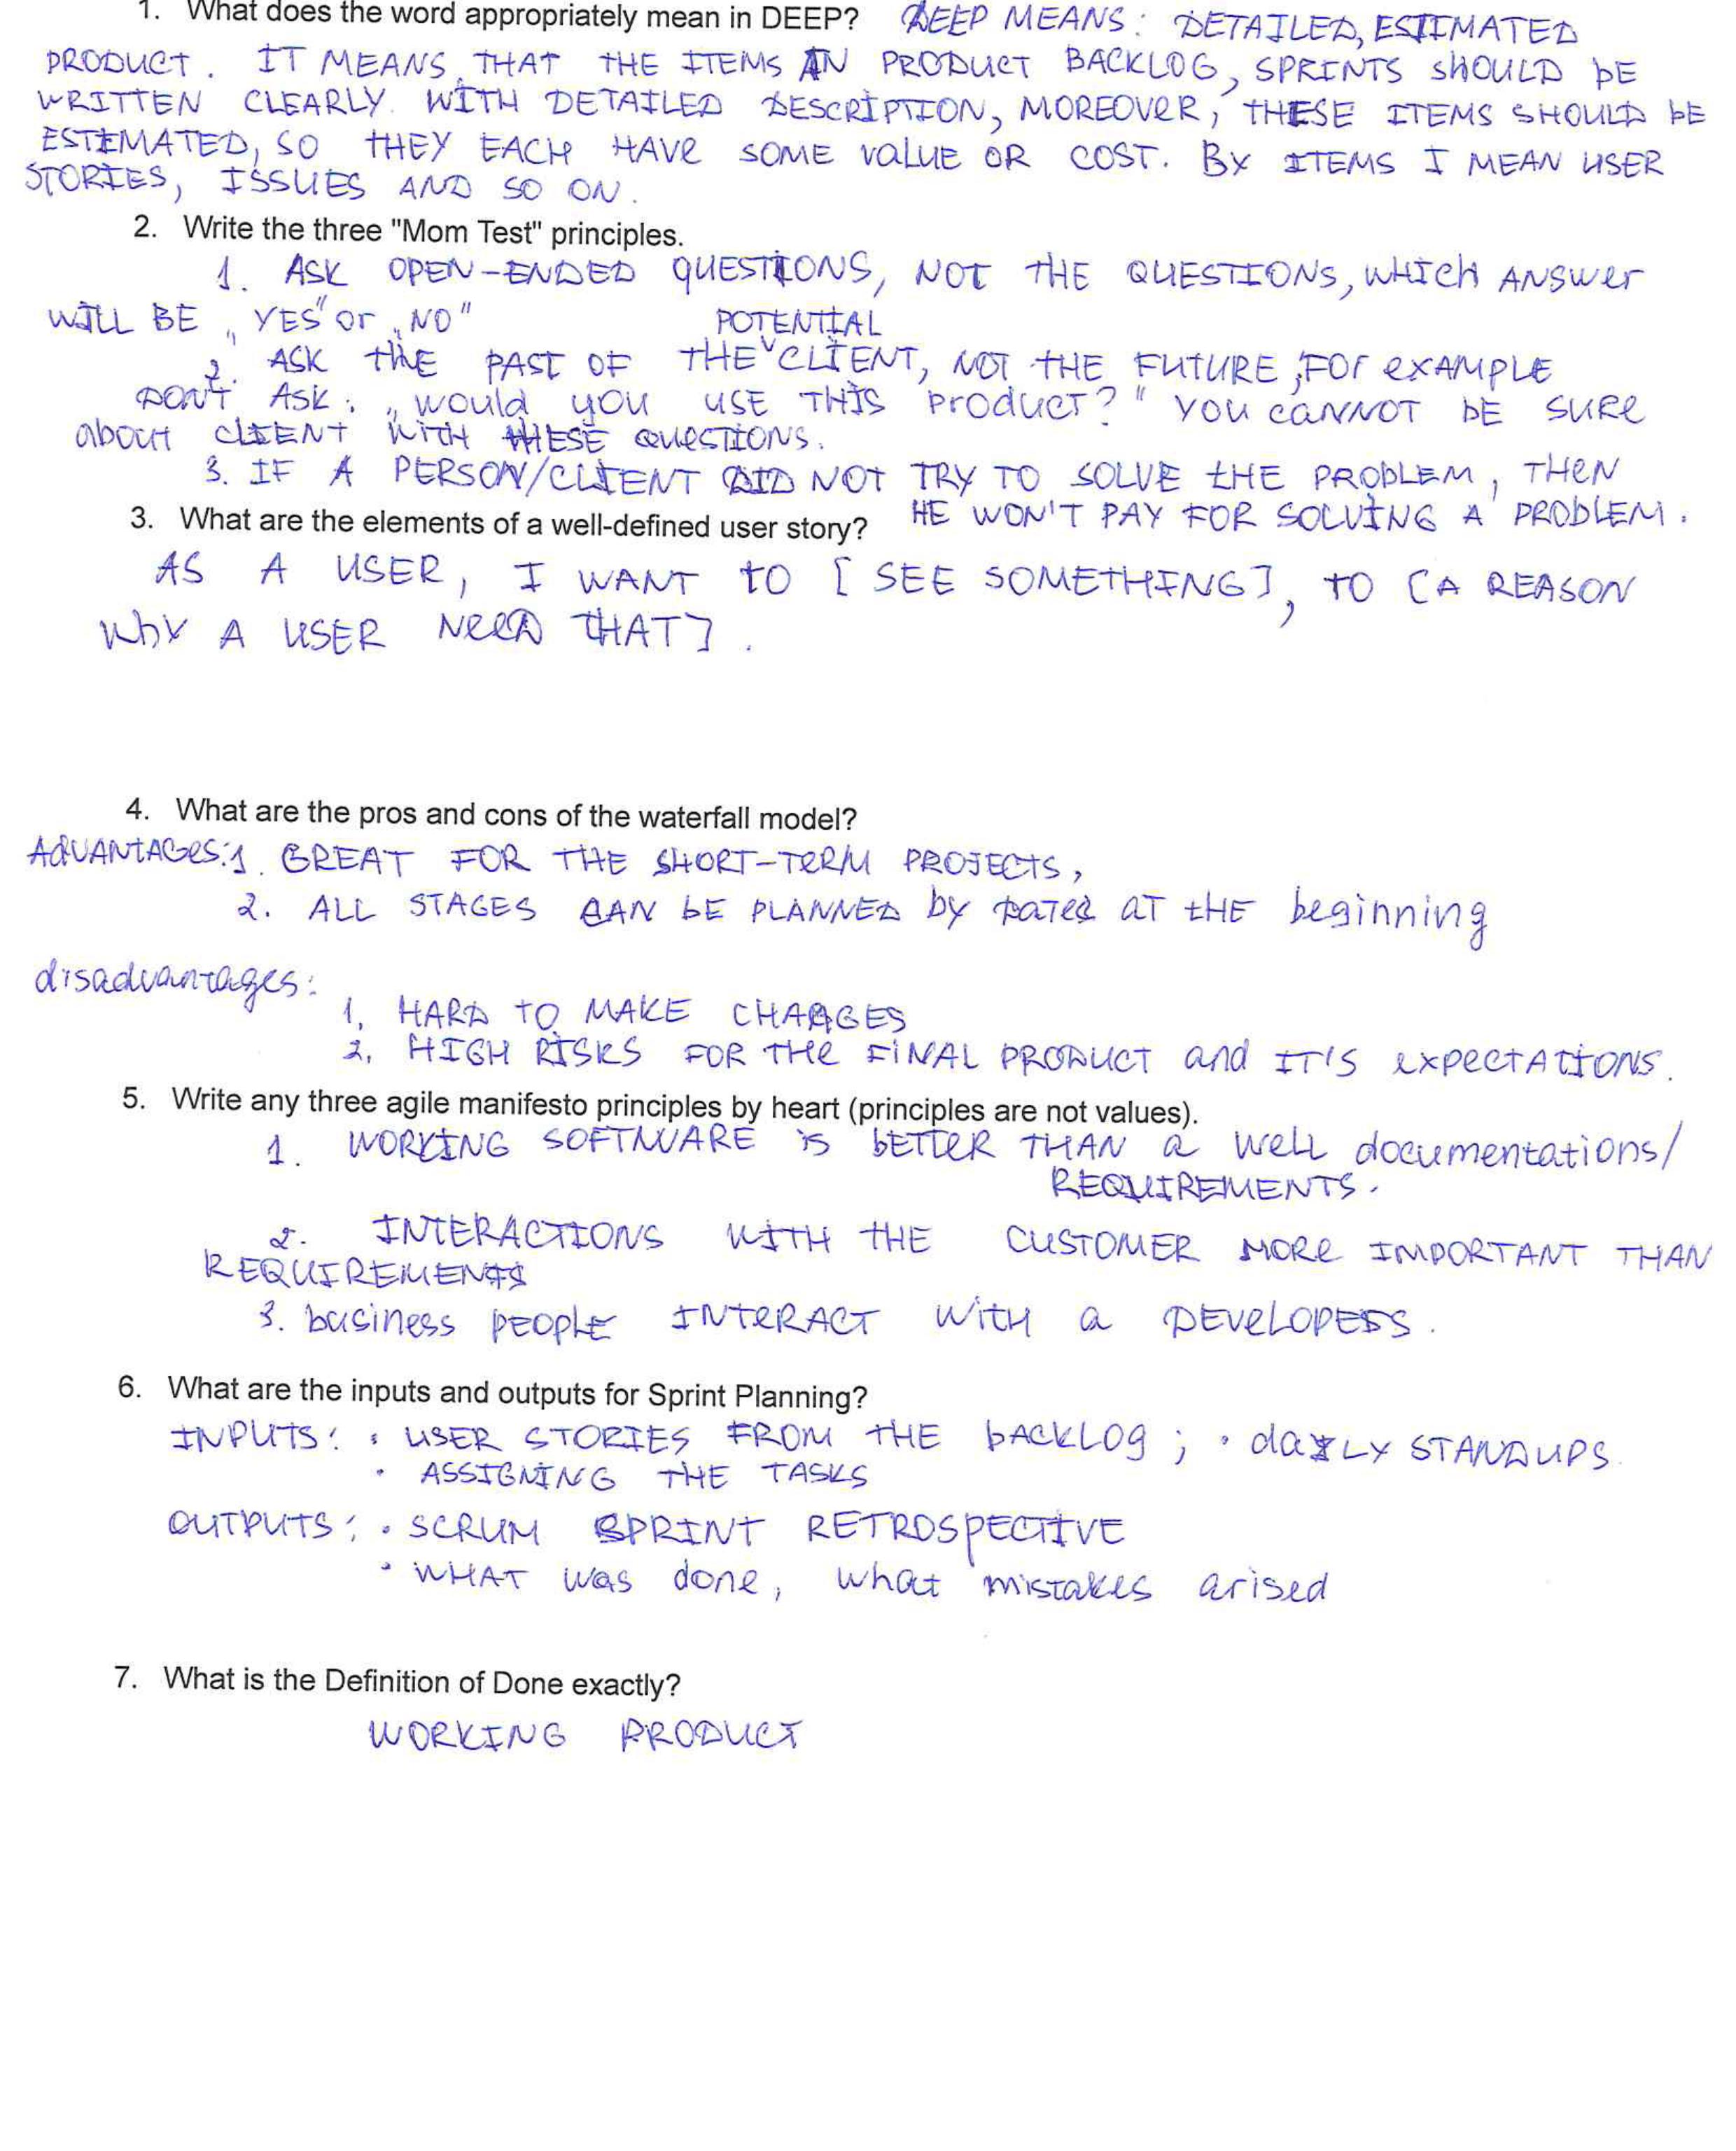 1. What does the word appropriately mean in DEEP? DEEP MEANS: DETAILED, ESTIMATED
PRODUCT. IT MEANS THAT THE ITEMS IN PRODUCT BACKLOG, SPRINTS SHOULD BE
WRITTEN CLEARLY WITH DETAILED DESCRIPTION, MOREOVER, THESE ITEMS SHOULD BE
ESTIMATED, SO THEY EACH HAVE SOME VALUE OR COST. BY ITEMS I MEAN USER
STORIES, ISSUES AND SO ON.
2. Write the three "Mom Test" principles.
1. ASK OPEN-ENDED QUESTIONS, NOT THE QUESTIONS, WHICH ANSWER
WILL BE „YES" or „NO"
POTENTIAL
2. ASK THE PAST OF THE CLIENT, NOT THE FUTURE, FOR EXAMPLE
DON'T ASK: „would you USE THIS product?" YOU CANNOT BE SURE
about CLIENT WITH THESE QUESTIONS.
3. IF A PERSON/CLIENT DID NOT TRY TO SOLVE THE PROBLEM, THEN
HE WON'T PAY FOR SOLVING A PROBLEM.
3. What are the elements of a well-defined user story?
AS A USER, I WANT TO [SEE SOMETHING], TO [A REASON
WHY A USER NEED THAT].
4. What are the pros and cons of the waterfall model?
ADVANTAGES: 1. GREAT FOR THE SHORT-TERM PROJECTS,
2. ALL STAGES CAN BE PLANNED by DATES AT THE beginning
disadvantages:
1. HARD TO MAKE CHANGES
2. HIGH RISKS FOR THE FINAL PRODUCT and IT'S EXPECTATIONS.
5. Write any three agile manifesto principles by heart (principles are not values).
1. WORKING SOFTWARE is BETTER THAN a WELL documentations/
REQUIREMENTS.
2. INTERACTIONS WITH THE CUSTOMER MORE IMPORTANT THAN
REQUIREMENTS
3. business PEOPLE INTERACT WITH a DEVELOPERS.
6. What are the inputs and outputs for Sprint Planning?
INPUTS: • USER STORIES FROM THE BACKLOG; • daILY STANDUPS
• ASSIGNING THE TASKS
OUTPUTS: • SCRUM SPRINT RETROSPECTIVE
• WHAT was done, what mistakes arised
7. What is the Definition of Done exactly?
WORKING PRODUCT